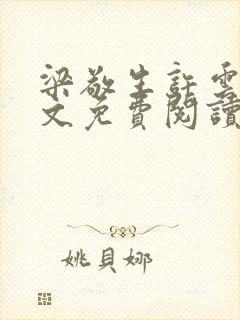 梁敬生許雲
文免費閱讀
姚貝娜